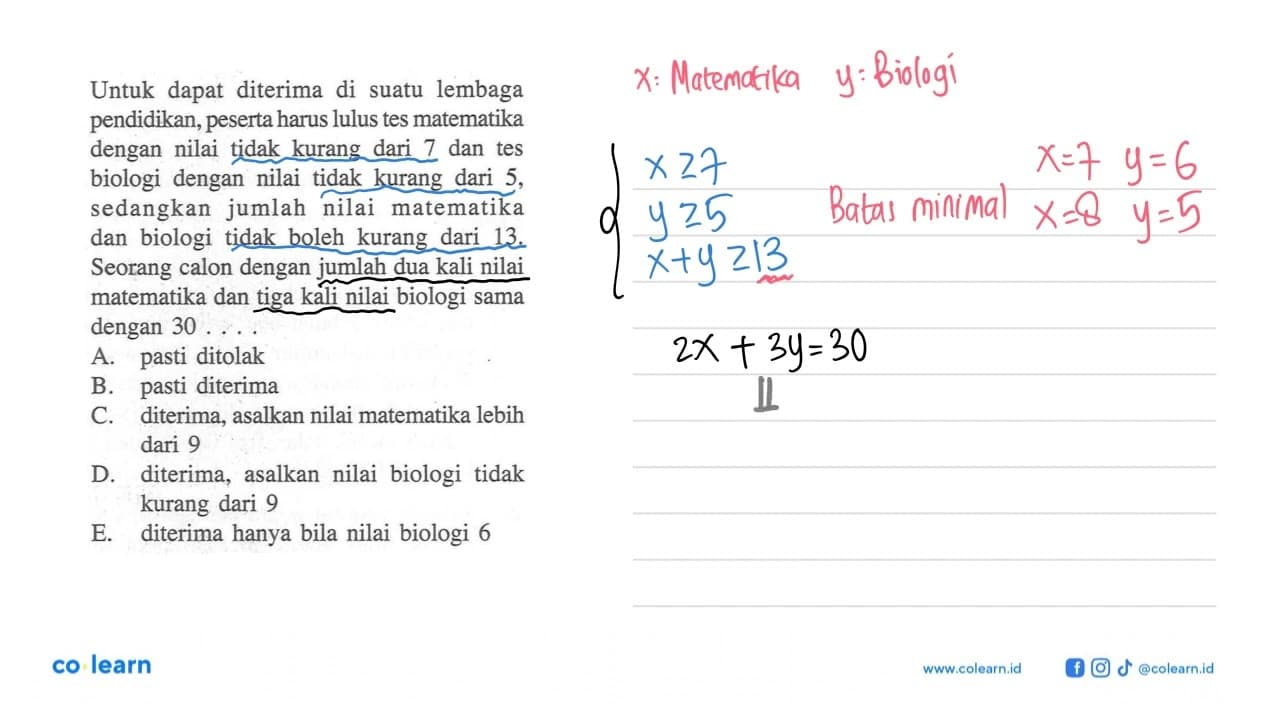 Untuk dapat diterima di suatu lembaga
pendidikan, peserta harus lulus tes matematika
dengan nilai tidak kurang dari 7 dan tes
biologi dengan nilai tidak kurang dari 5,
sedangkan jumlah nilai matematika
dan biologi tidak boleh kurang dari 13.
Seorang calon dengan jumlah dua kali nilai
matematika dan tiga kali nilai biologi sama
dengan 30 . . . .
A. pasti ditolak
B. pasti diterima
C. diterima, asalkan nilai matematika lebih
dari 9
D. diterima, asalkan nilai biologi tidak
kurang dari 9
E. diterima hanya bila nilai biologi 6
x: Matematika y: Biologi
x ≥ 7
y ≥ 5
x + y ≥ 13
Batas minimal
x = 7 y = 6
x = 8 y = 5
2x + 3y = 30
co learn
www.colearn.id
@colearn.id